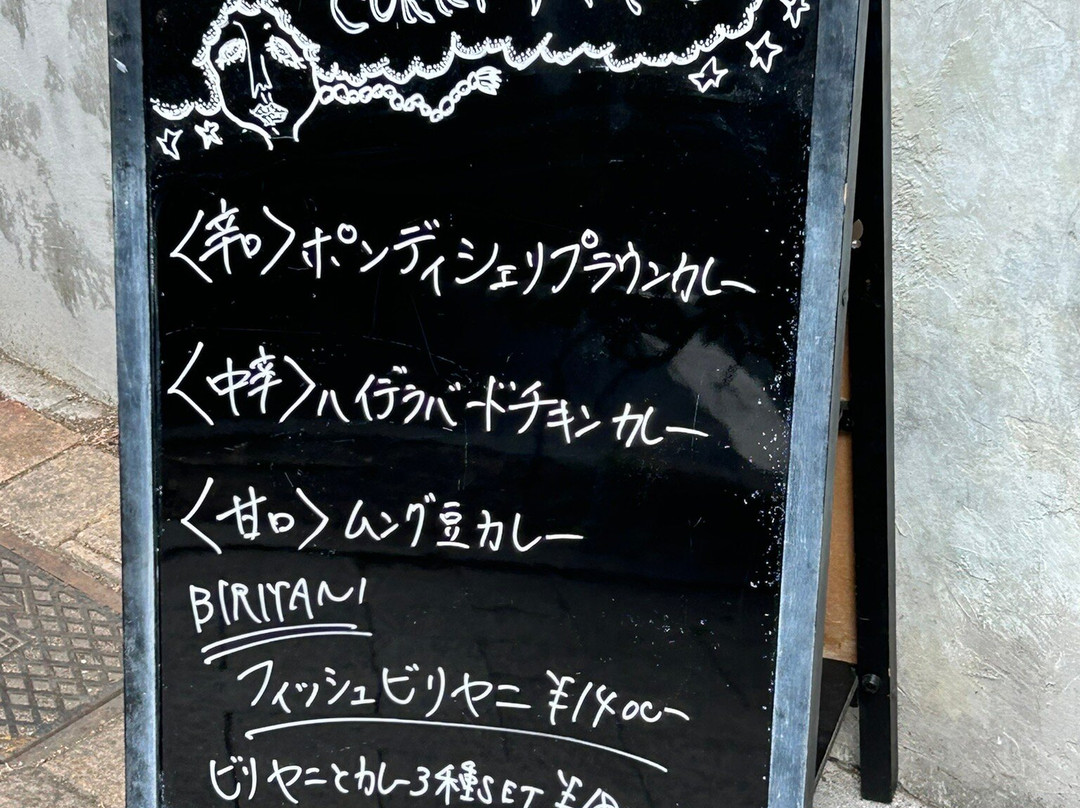 〈辛口〉ポンディシェリプラウンカレー
〈中辛〉ハイデラバードチキンカレー
〈甘口〉ムング豆カレー
BIRIYANI
フィッシュビリヤニ ¥1400-
ビリヤニとカレー3種SET